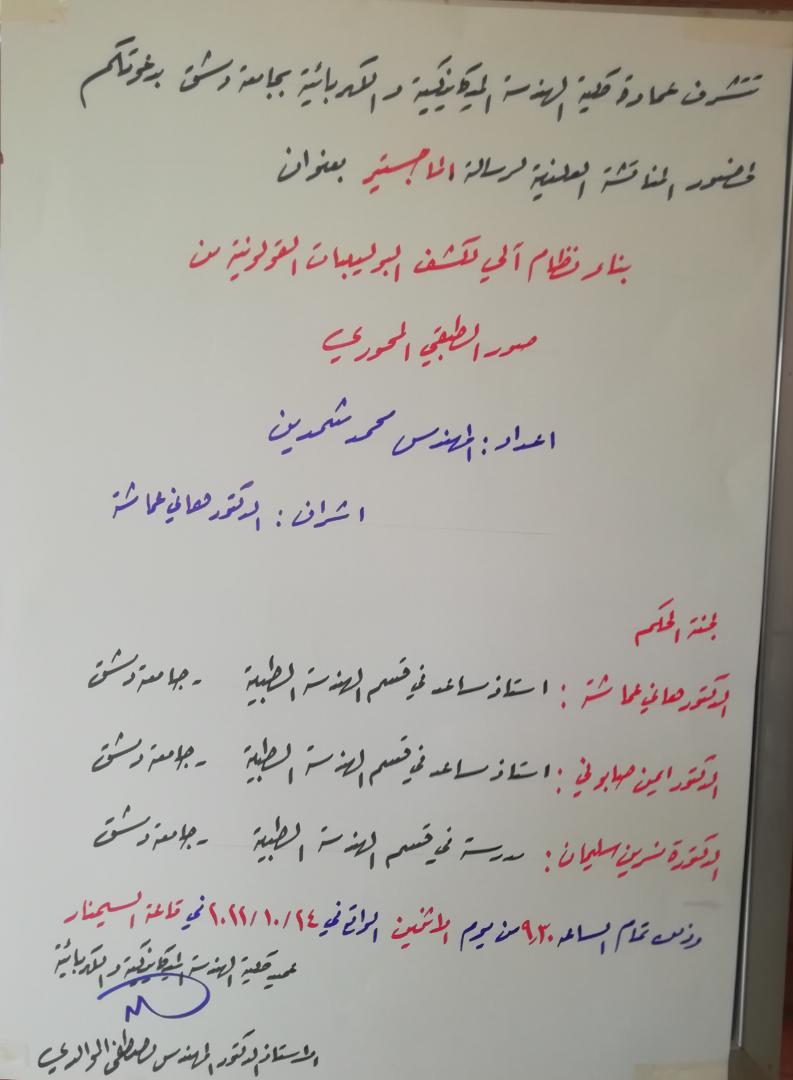 تتشرف عمادة كلية الهندسة الميكانيكية والكهربائية بجامعة دمشق بدعوتكم
لحضور المناقشة العلنية لرسالة الماجستير بعنوان
بناء نظام آلي لكشف البوليبات القولونية من
صور الطبقي المحوري
اعداد : المهندس محمد شمدين
اشراف : الدكتور هاني عماشة
لجنة الحكم
الدكتور هاني عماشة : استاذ مساعد في قسم الهندسة الطبية - جامعة دمشق
الدكتور ايمن صابوني : استاذ مساعد في قسم الهندسة الطبية - جامعة دمشق
الدكتورة نسرين سليمان : مدرسة في قسم الهندسة الطبية - جامعة دمشق
وذلك تمام الساعة ٩,٣٠ من يوم الاثنين الواقع في ٢٠٢٢/١٠/٢٤ في قاعة السيمنار
عميد كلية الهندسة الميكانيكية والكهربائية
الاستاذ الدكتور المهندس مصطفى الموالدي